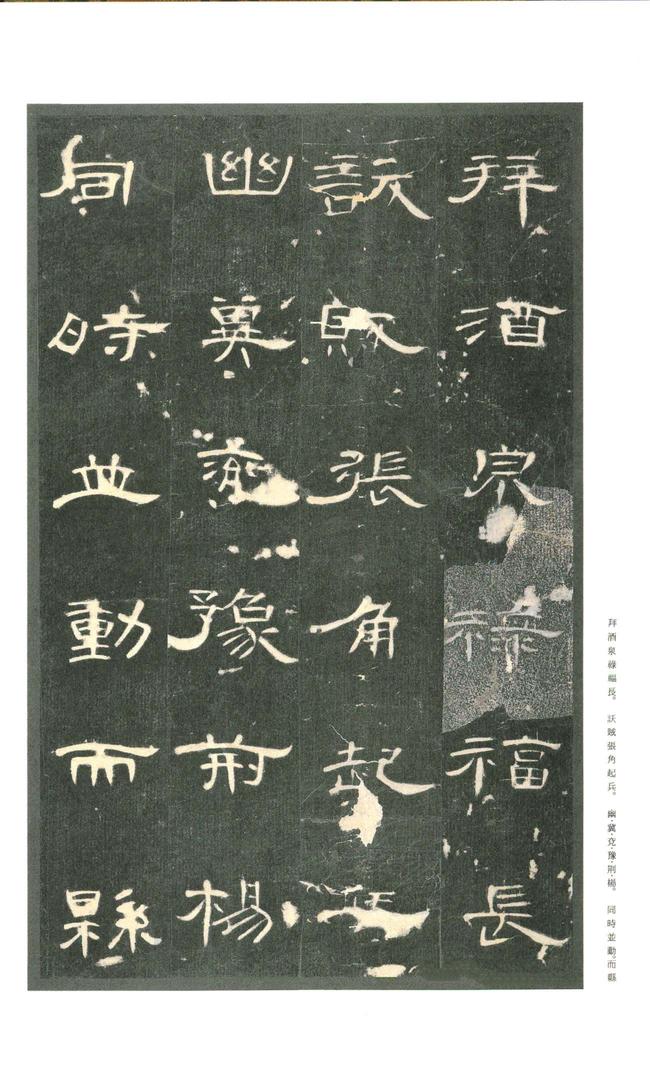 拜酒泉祿福長
訞賊張角起兵
幽冀兗豫荊楊
同時並動而縣
拜酒泉祿福長。訞賊張角起兵。幽·冀·兗·豫·荊·楊。同時並動。而縣